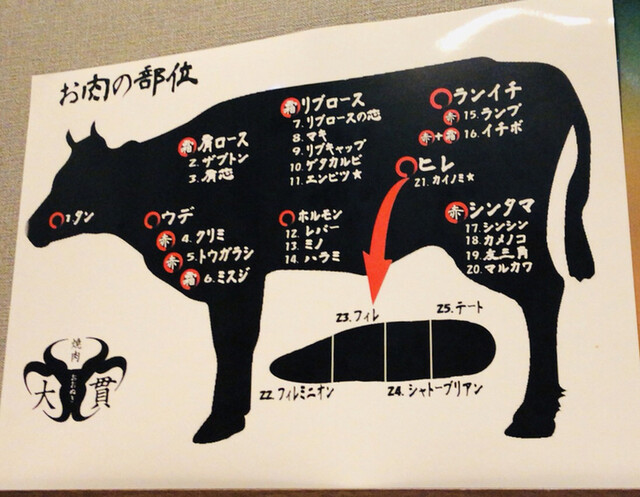 お肉の部位
霜 肩ロース
2. ザブトン
3. 肩芯
霜 リブロース
7. リブロースの芯
8. マキ
9. リブキャップ
10. ゲタカルビ
11. エンピツ★
ランイチ
赤 15. ランプ
赤+霜 16. イチボ
ヒレ
21. カイノミ★
1. タン
ウデ
赤 4. クリミ
赤 5. トウガラシ
霜 6. ミスジ
ホルモン
12. レバー
13. ミノ
14. ハラミ
赤 シンタマ
17. シンシン
18. カメノコ
19. 友三角
20. マルカワ
23. フィレ
25. テート
22. フィレミニオン
24. シャトーブリアン
焼肉
おおぬき
大貫